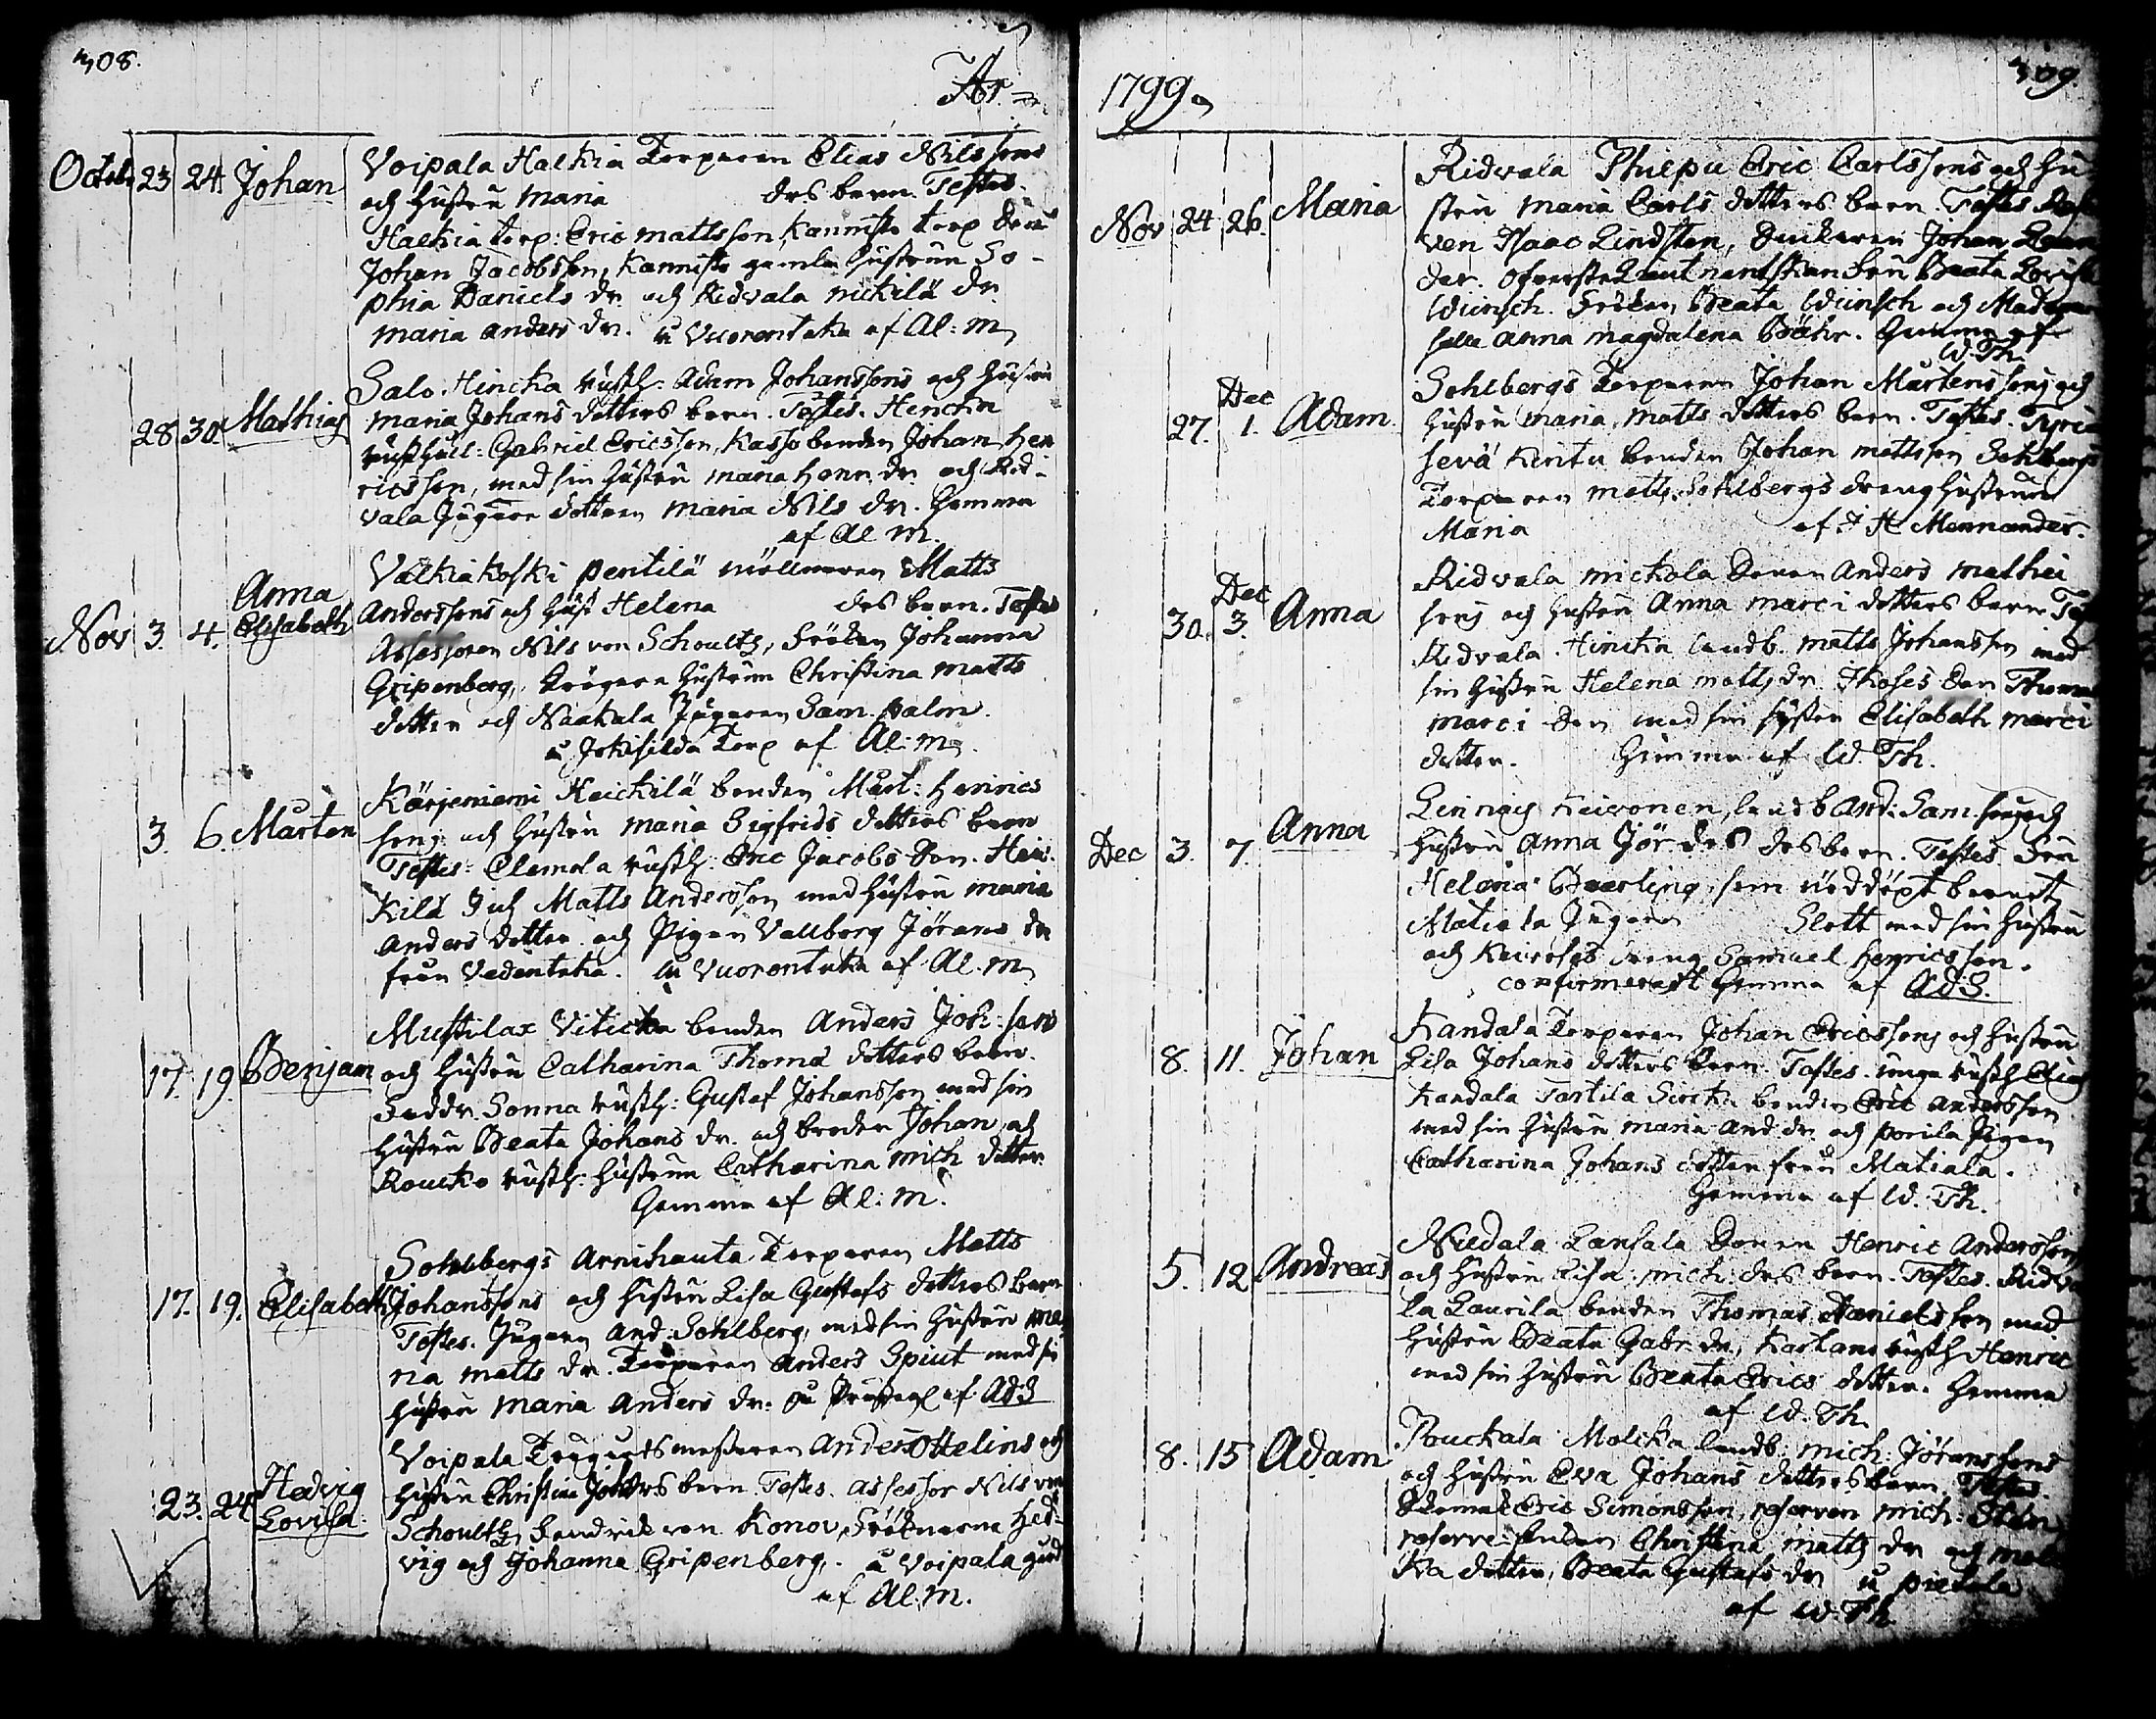 308.
År
Octob 23 24 Johan
Voipala Halkia Torparen Elias Nilssons
och hustru Maria des barn. Testes.
Halkia torp: Eric Mattsson, Kannisto torp dr.
Johan Jacobsson, Kannisto gamla hustrun So-
phia Daniels dr. och Ridvala Nickilä dr.
Maria Anders dr. i Vuorentaka af Al: M.
28 30. Mathias
Salo. Hincka rusth: Adam Johanssons och hustru
Maria Johans dotters barn. Testes. Hencka
rusthåll: Gabriel Ericsson, Kasso bonden Johan Hen
ricsson, med sin hustru Maria Henr. dr. och Rid-
vala Jägare dottren Maria Nils dr. Hemma
af Al M.
Nov 3. 4. Anna
Elisabeth
Valkiakoski Pentilä möllnaren Matts
Anderssons och hust Helena des barn. Testes
Assessoren Nils von Schoultz, Fröken Johanna
Gripenberg, Krögare hustrun Christina Matts
dotter och Naakala Jägaren Sam. Palm.
i Jokisilda Torp af Al: M.
3. 6. Mårten
Kärjenniemi Heickilä bonden Mårt: Henrics
sons och hustru Maria Sigfrids dotters barn
Testes: Clemola rusth: Eric Jacobs son. Hei-
kilä Inh Matts Andersson med hustru Maria
Anders dotter och Pigan Vallborg Jörans dr
från Vedentaka. i Vuorentaka af Al. M
17. 19. Benjam
Mustilax Viticka bonden Anders Joh: sons
och hustru Catharina Thomæ dotters barn.
Faddr. Sonna rusth: Gustaf Johansson med sin
hustru Beata Johans dr. och broder Johan, och
Roucko rusth: hustrun Catharina Mich dotter
Hemma af Al: M.
17. 19. Elisabeth
Sohlbergs Arnihauta Torparen Matts
Johanssons och hustru Lisa Gustafs dotters barn
Testes. Jägaren And: Sohlberg, med sin hustru An
na Matts dr. Torparen Anders Spiut med sin
hustru Maria Anders dr. af Ad: S
23. 24 Hedvig
Lovisa.
Voipala Trägårdsmästaren Anders Ottelins och
hustru Christina Joh drs barn. Testes. Assessor Nils von
Schoultz, Fendrik von Konov, Fröknarna Hed-
vig och Johanna Gripenberg. i Voipala gård
af Al: M.
1799.
309.
Nov 24 26. Maria
Ridvala Phiepu Eric Carlssons och hu
stru Maria Carls dotters barn. Testes
ven Isaac Lindsten, Johan
der. Öfverste Leutnantskan Fru Beata Lovisa
Wunsch. Fröken Beata Wunsch och Madame
selle Anna Magdalena Bähr. Hemma af
W. Th
27. Dec 1. Adam.
Sohlbergs Torparen Johan Mårtenssons och
hustru Maria Matts dotters barn. Testes.
sevä Kentu bonden Johan Mattsson Sohlbergs
Torparen Matts, Sohlbergs dreng hustrun
Maria af J H Mennander.
30. Dec 3. Anna
Ridvala Mickola Sonen Anders Mathiæ
sons och hustru Anna Marci dotters barn Tes
Ridvala Hincka landb. Matts Johansson med
sin hustru Helena Matts dr. Thoses son Thomas
Marci son med sin syster Elisabeth Marci
dotter. Hemma af W. Th.
Dec 3. 7. Anna
Linnais Keivonen, landb And: Sam. sons och
hustru Anna Jör drs des barn. Testes Fru
Helena Baerling, som nöddöpt barnet
Matiala Jägaren Slott med sin hustru
och dreng Samuel Henricsson.
confirmerat Hemma af Ad: S.
8. 11. Johan
Kandala Torparen Johan Ericssons och hustru
Lisa Johans dotters barn. Testes. unga rusth Elias
Kandala Tartila Sircka bonden Eric Andersson
med sin hustru Maria And dr. och Porila Pigan
Catharina Johans dotter från Matiala.
Hemma af W. Th.
5. 12 Andreas
Niedala Lansala Sonen Henric Anderssons
och hustru Lisa Mich: drs barn. Testes. Ridva
la Laurila bonden Thomas Danielsson med
hustru Beata Gabr. dr, Kartano rusth Henric
med sin hustru Beata Erics dotter. Hemma
af W. Th.
8. 15 Adam
Pouckala Molcka landb: Mich: Jöranssons
och hustru Eva Johans dotters barn. Testes.
Eric Simonsson, reserven Mich: Sten
reserve Enkan Christina Matts dr och Mol
ka dotter, Beata Gustafs dr i Pietola
af W. Th